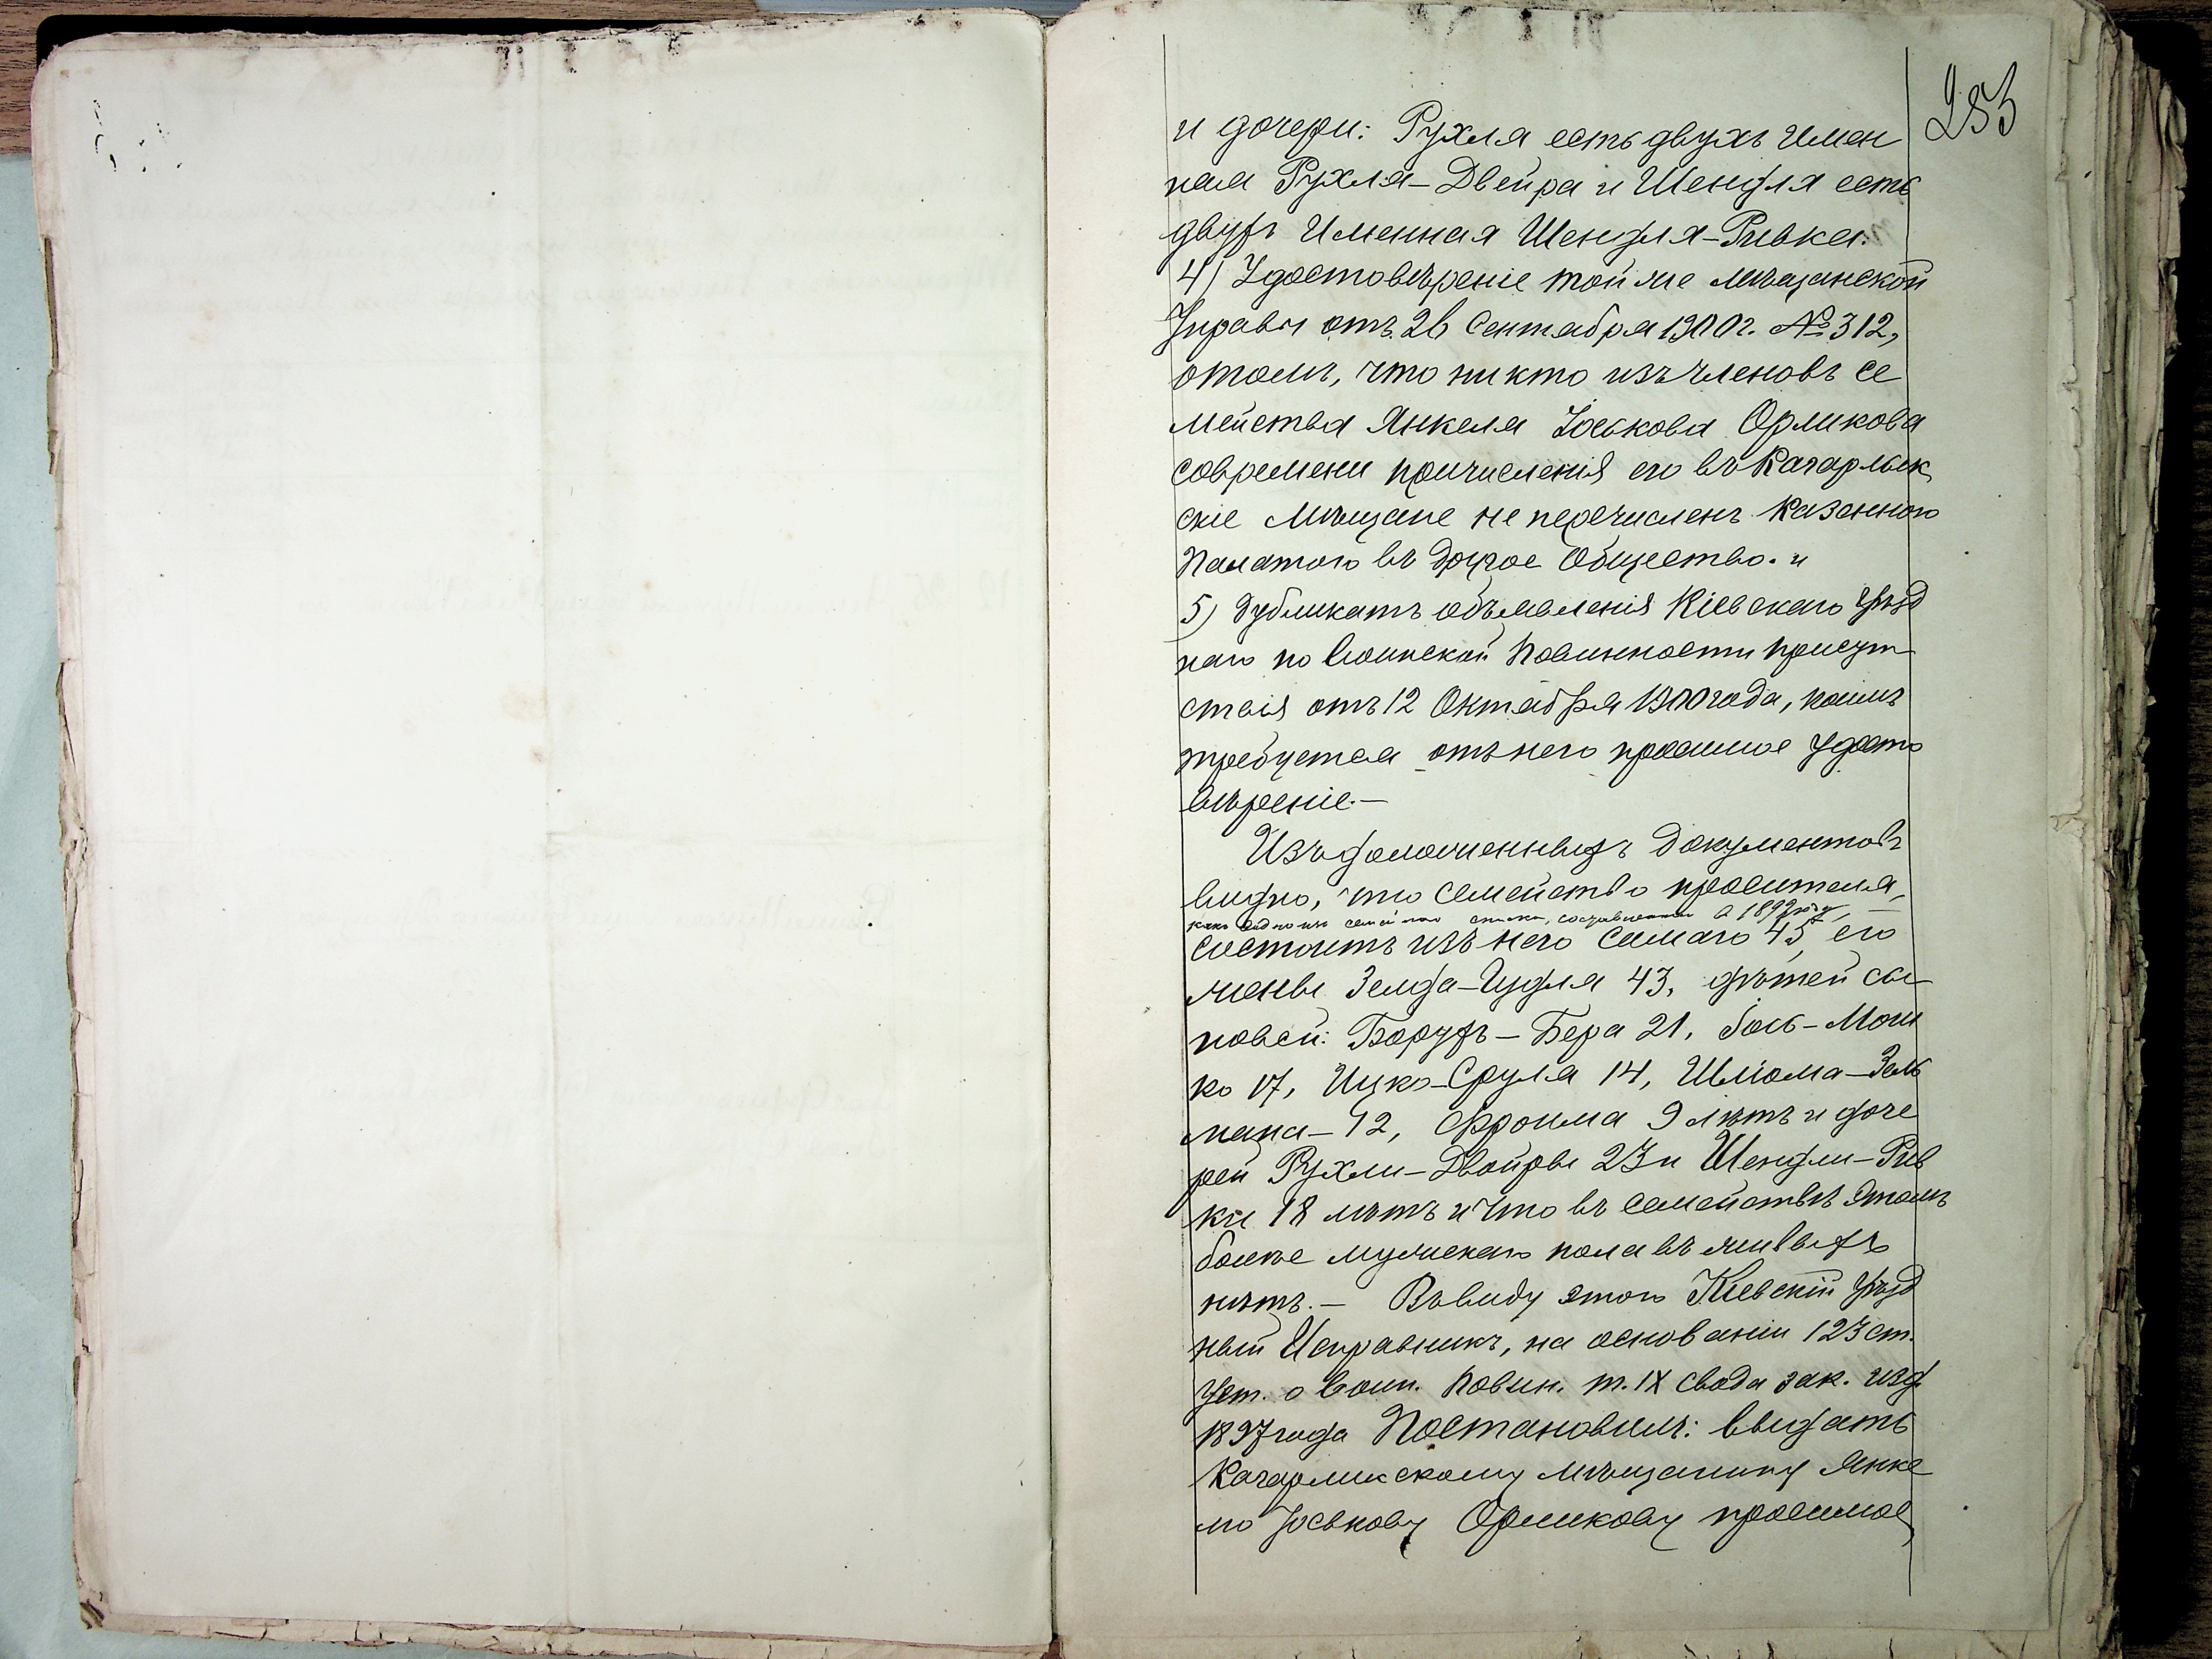 253
и дочери: Рухля есть двухъ Имен
ная Рухля-Двейра и Шендля есть
двухъ Именная Шендля-Ривка.
4) Удостовѣреніе той же мѣщанской
Управы отъ 26 Сентября 1900 г. № 312,
отомъ, что никто изъ членовъ се
мейства Янкеля Іоськова Орликова
современи причисленія его въ Кагарлык
скіе Мѣщане не перечисленъ Казенною
Палатою въ другое Общество. и
5) Дубликатъ объявленія Кіевскаго Уѣзд
наго по Воинской Повинности присут
ствія отъ 12 Октября 1900 года, коимъ
требуется отъ него просимое удосто
вѣреніе.—
Изъ доложенныхъ документовъ
видно, что семейство просителя,
какъ видно изъ семейнаго списка, составленнаго в 1892 году,
состоитъ изъ него самаго 45, его
жены Зелда-Гудля 43, дѣтей сы
новей: Борухъ-Бера 21, Іось-Мош
ко 17, Ицко-Сруля 14, Шлiома-Зель
мана-12, Фроима 9 лѣтъ и доче
рей Рухли-Двойры 23 и Шендли-Рив
ки 18 лѣтъ и что въ семействѣ этомъ
болѣе мужскаго пола въ живыхъ
нѣтъ.— Въ виду этого Кіевскій Уѣзд
ный Исправникъ, на основаніи 123 ст.
Уст. о Воин. Повин. т. IX свода зак. изд.
1897 года Постановилъ: выдать
Кагарликскому Мѣщанину Янке
лю Іоськову Орликову просимое